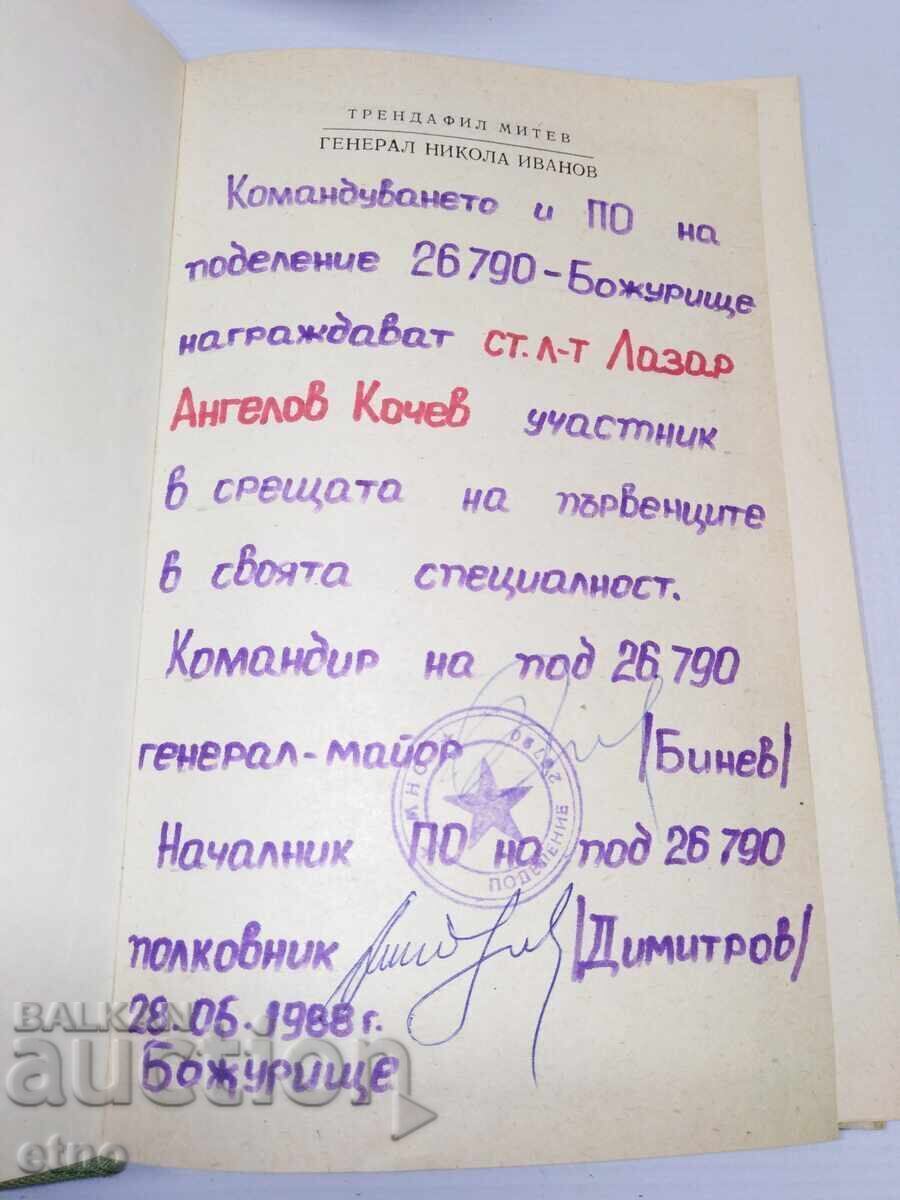 ТРЕНДАФИЛ МИТЕВ
ГЕНЕРАЛ НИКОЛА ИВАНОВ
Командуването и ПО на
поделение 26790-Божурище
награждават ст.л-т Лазар
Ангелов Кочев участник
в срещата на първенците
в своята специалност.
Командир на под 26790
генерал-майор /Бинев/
Началник ПО на под 26790
полковник /Димитров/
28.06.1988г.
Божурище
ПОДЕЛЕНИЕ 26790
BALKAN
auction
etno